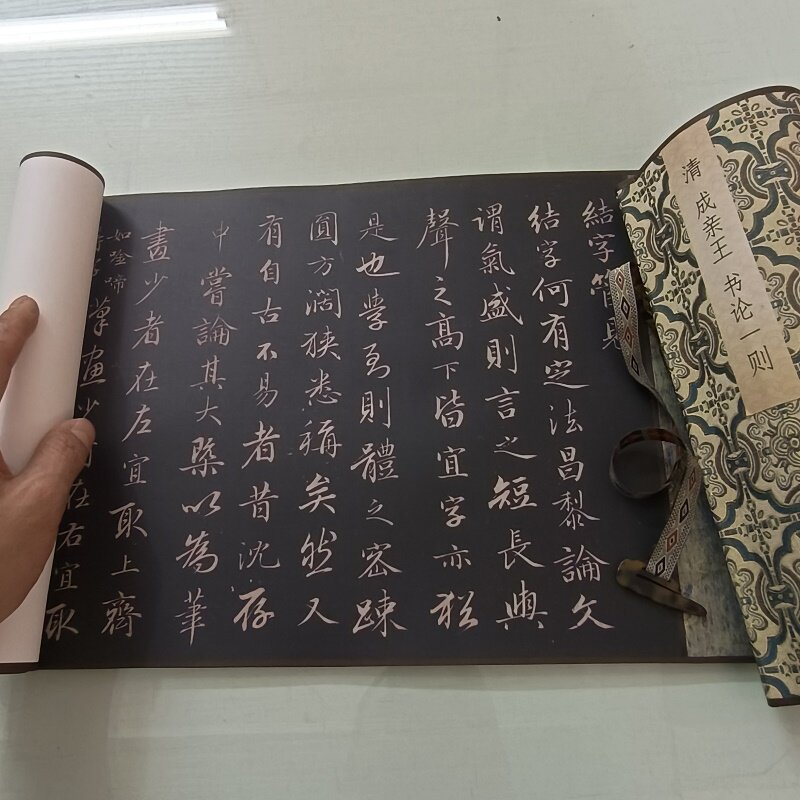 清 成亲王 书论一则
結字管見
結字何有定法昌黎論文
謂氣盛則言之短長與
聲之高下皆宜字亦猶
是也學至則體之密疎
圓方濶狹悉稱矣然又
有自古不易者昔沈存
中嘗論其大槩以為筆
畫少者在左宜取上齊
如唫啼
筆畫少者在右宜取